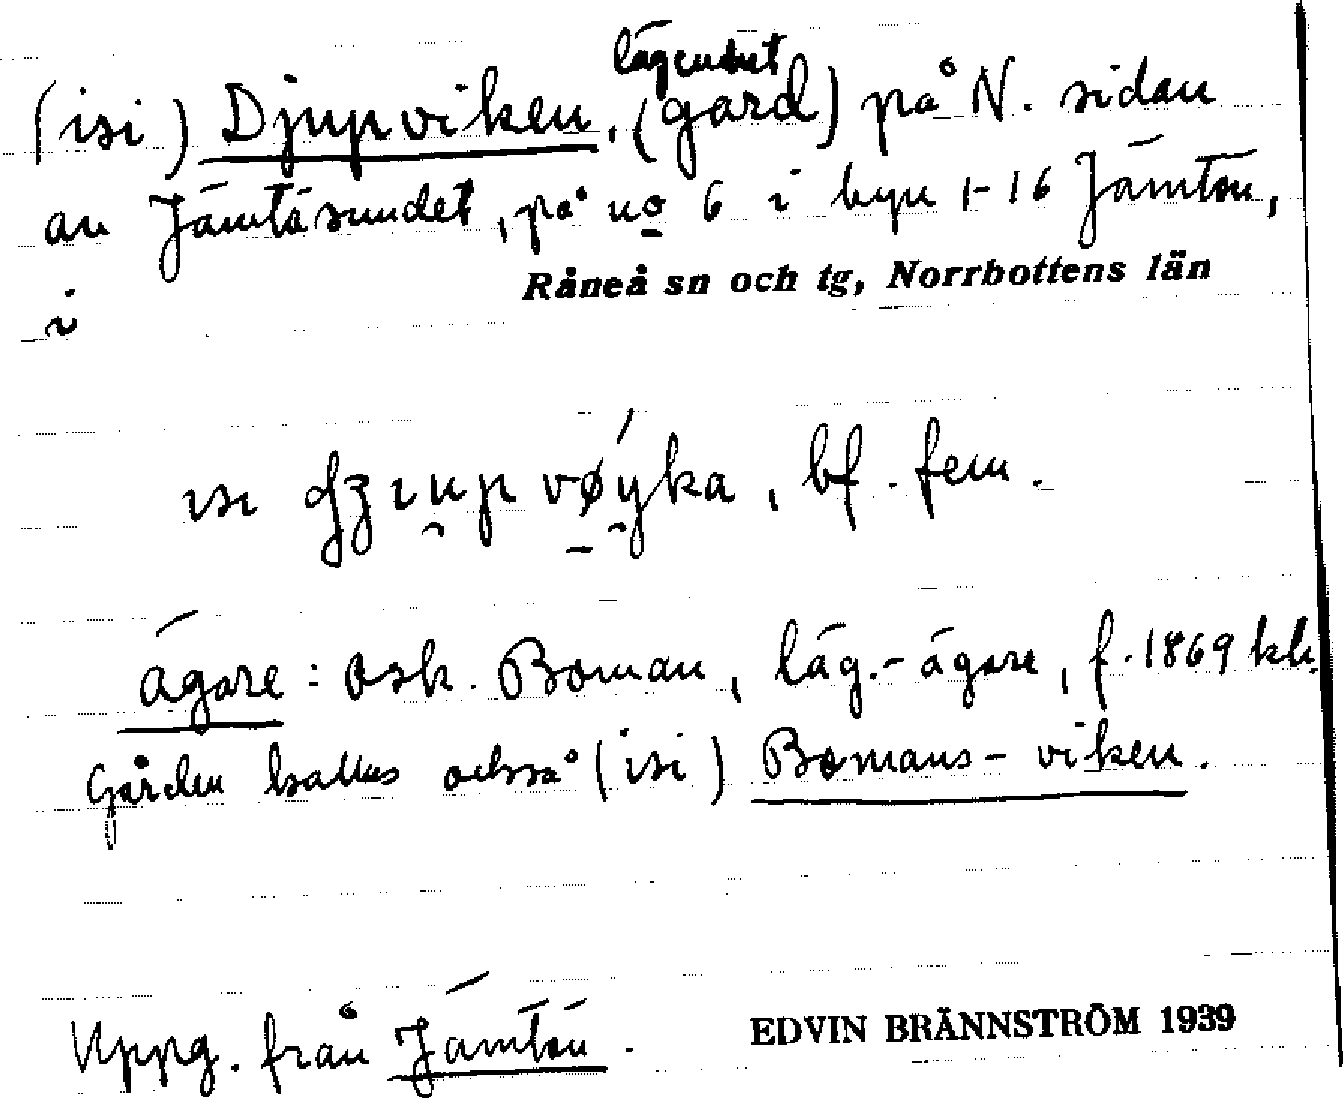 lägenhet
(isi) Djupviken, (gård) på N. sidan
av Jämtösundet, på no 6 i byn 1-16 Jämtön,
i Råneå sn och tg, Norrbottens län
ısı vøýka, bf. fem.
ägare: Osk. Boman, läg.-ägare, f. 1869 kh.
Gården kallas också (isi) Bomans-viken.
Uppg. från Jämtön.
EDVIN BRÄNNSTRÖM 1939